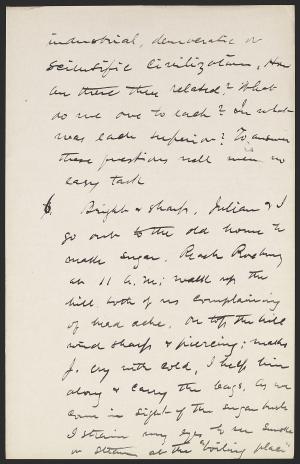 industrial, democratic or
scientific civilization. How
are there three related? What
do we owe to each? In what
was each superior? To answer
these questions well were no
easy task
6. Bright & sharp, Julian & I
go out to the old home to
make sugar. Reach Roxbury
at 11 A.M; walk up the
hill both of us complaining
of head ache. On top the hill
wind sharp & piercing; makes
J. cry with cold, I help him
along & carry the bags. As we
come in sight of the sugar bush
I strain my eyes to see smoke
or steam at the "boiling place"